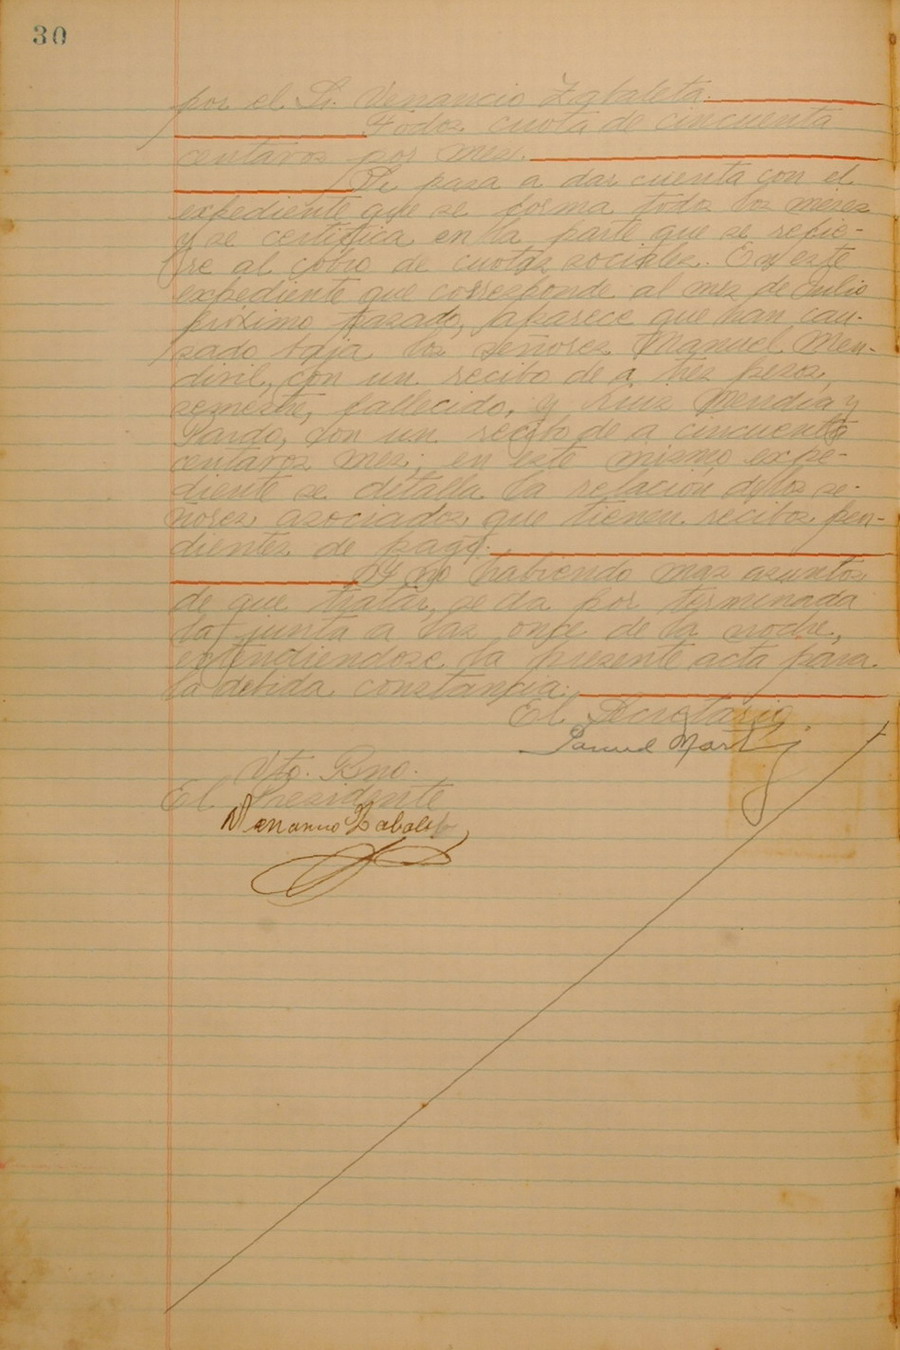 30
por el Sr. Venancio Zabaleta.
Todos cuota de cincuenta
centavos por mes.
Se pasa a dar cuenta con el
expediente que se forma todos los meses
y se certifica en la parte que se refie-
re al cobro de cuotas sociales. En este
expediente que corresponde al mes de Julio
próximo pasado, aparece que han cau-
sado baja los señores Manuel Men-
divil, con un recibo de a tres pesos,
semestre, fallecido, y Luis Mendia y
Pardo, con un recibo de a cincuenta
centavos mes; en este mismo expe-
diente se detalla la relación de los se-
ñores asociados que tienen recibos pen-
dientes de pago.
Y no habiendo mas asuntos
de que tratar, se da por terminada
la junta a las once de la noche,
extendiendose la presente acta para
la debida constancia.
El Secretario
Samuel Martinez
Vto. Bno.
El Presidente
Venancio Zabaleta